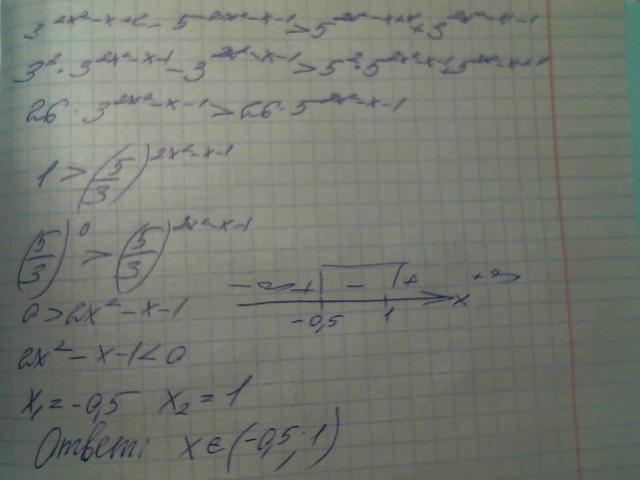 3^{2x²-x+2} - 5^{2x²-x-1} > 5^{2x²-x+1} + 3^{2x²-x-1}
3² · 3^{2x²-x-1} - 3^{2x²-x-1} > 5² · 5^{2x²-x-1} + 5^{2x²-x-1}
26 · 3^{2x²-x-1} > 26 · 5^{2x²-x-1}
1 > (5/3)^{2x²-x-1}
(5/3)^0 > (5/3)^{2x²-x-1}
0 > 2x² - x - 1
2x² - x - 1 < 0
x₁ = -0,5 x₂ = 1
Ответ: x ∈ (-0,5; 1)
-∞ + - + x +∞
-0,5 1